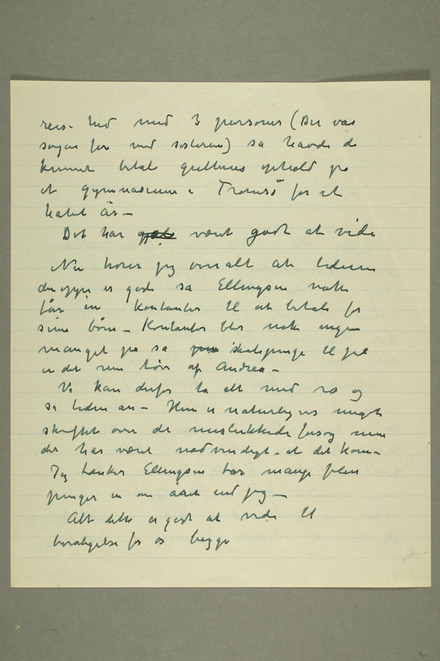 reis- hid med 3 personer (Der var
sørget for med søsteren) så havde de
kunnet betale guttens ophold på
et gymnasium i Tromsø for et
halvt år –
Det har været godt at vide
Nu hører jeg overalt at tiderne
deroppe er gode så Ellingsen nok
får in kontanter til at betale for
sine børn – Kontanter blir nok ingen
mangel på så skolepenge til jul
er det rene tøv af Andrea –
Vi kan derfor ta alt med ro og
se tiden an – Hun er naturligvis meget
skuffet over det mislykkede forsøg men
det har været nødvendigt at det kom –
Jeg tænker Ellingsen har mange flere
penger in om året end jeg –
Alt dette er godt at vide til
beroligelse for os begge